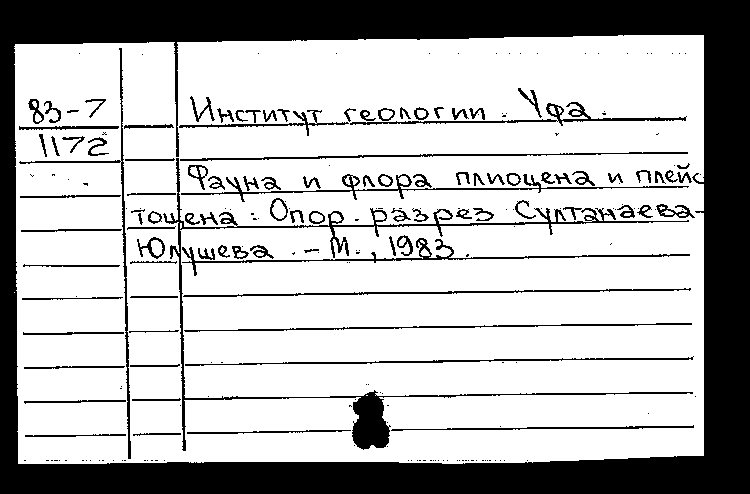 83-7 Институт геологии. Уфа.
1172
Фауна и флора плиоцена и плейс
тоцена: Опор. разрез Султанаева-
Юлушева. - М., 1983.